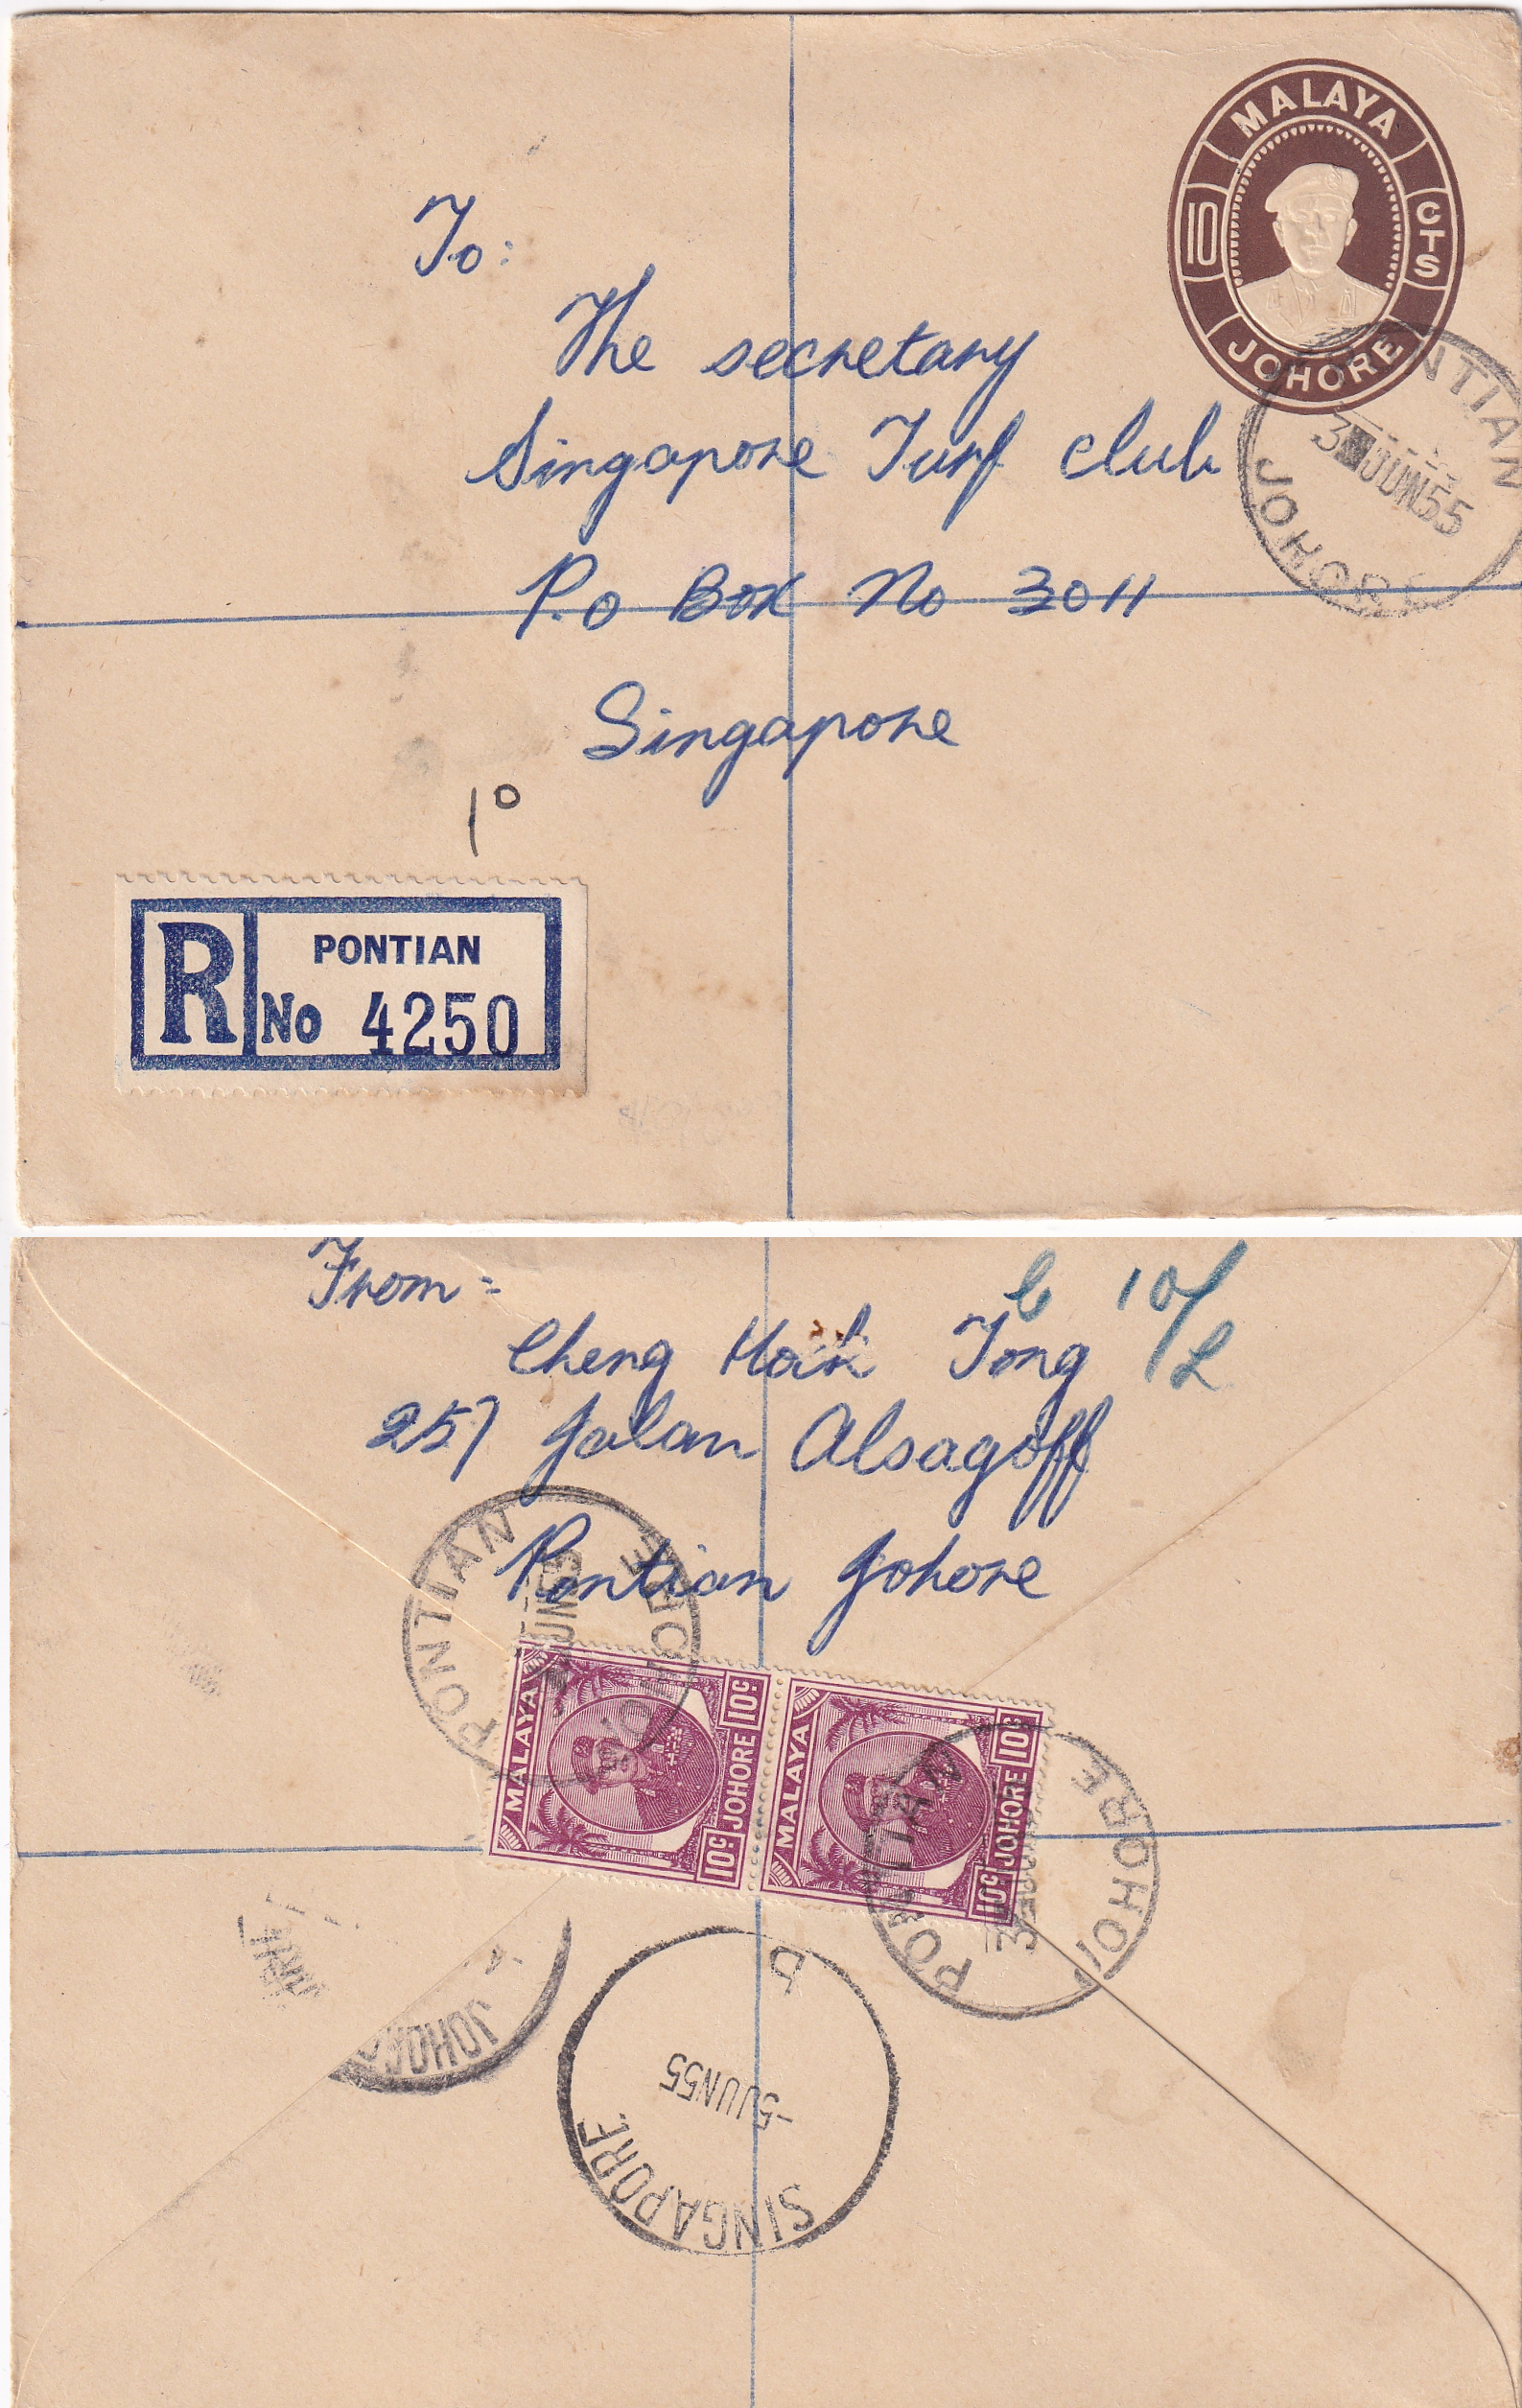 MALAYA
10
CTS
JOHORE
PONTIAN
3 JUN 55
JOHORE
To:
The secretary
Singapore Turf club
P.o Box No 3011
Singapore
10
R
PONTIAN
No 4250
From:
Cheng Hoik Tong
10/L
257 Jalan Alsagoff
Pontian Johore
PONTIAN
JUN 55
JOHORE
MALAYA
10c
JOHORE
10c
MALAYA
10c
JOHORE
10c
PONTIAN
JOHORE
JOHO
D
-5 JUN 55
SINGAPORE